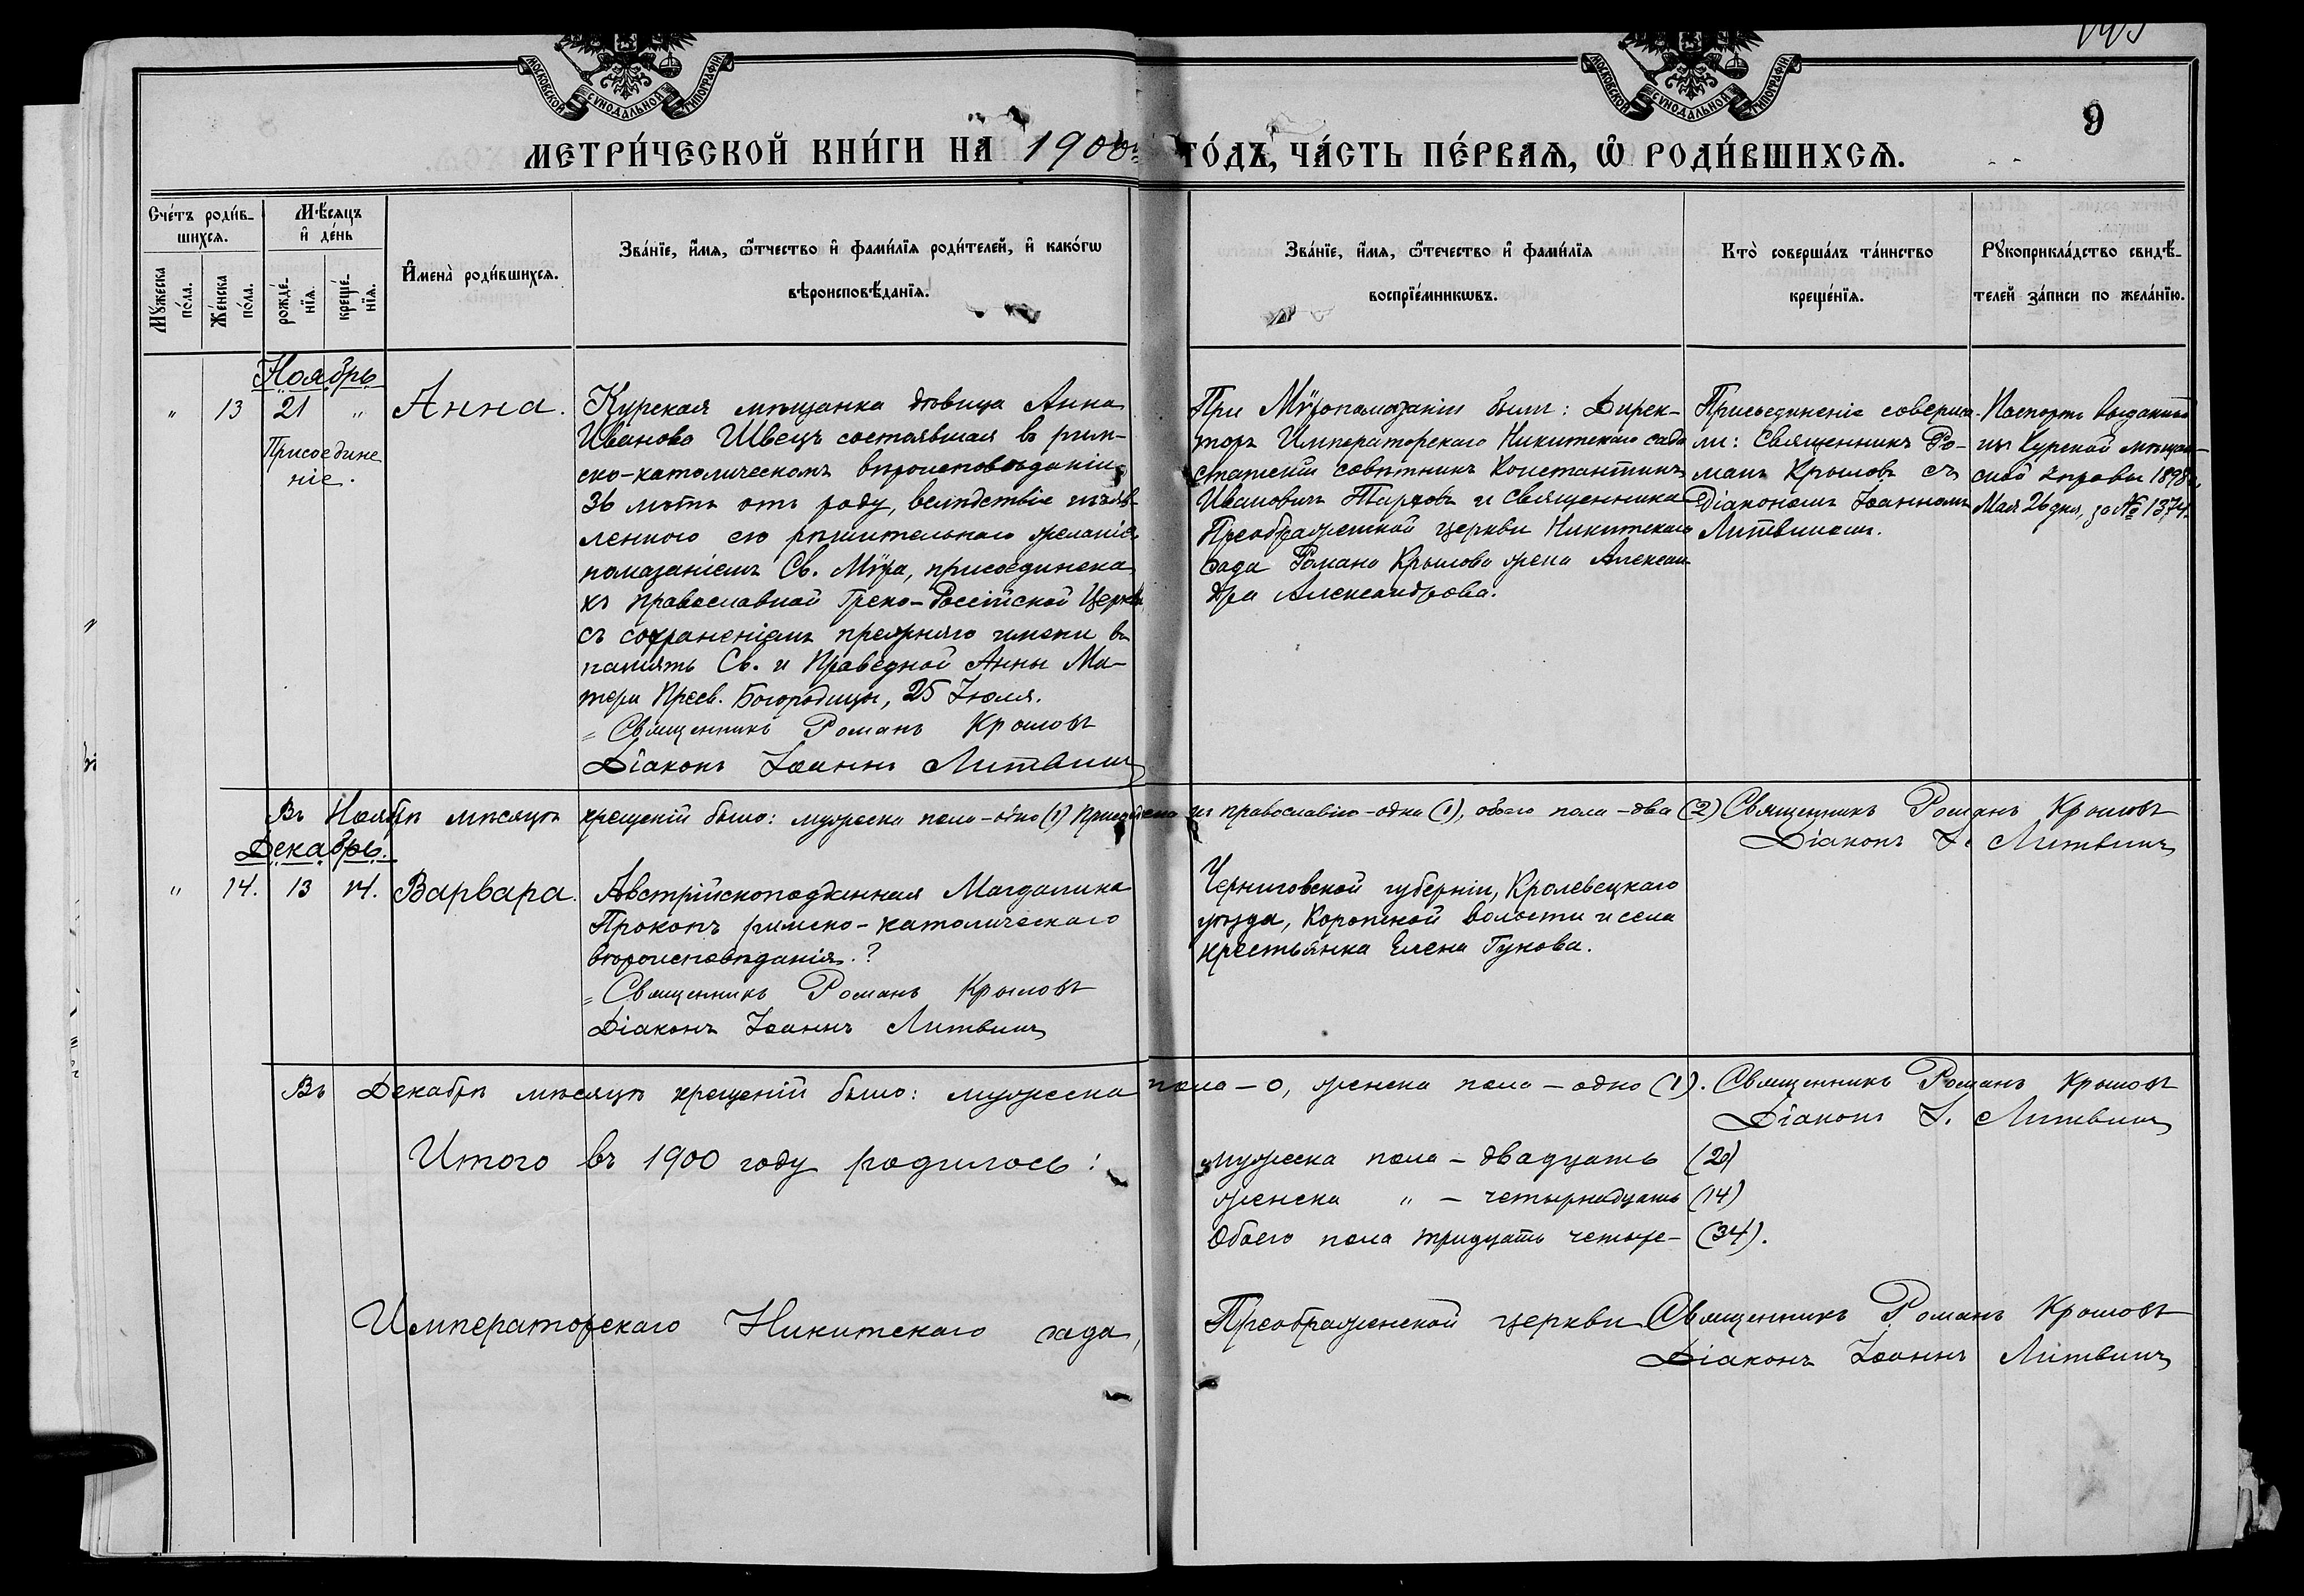 МОСКОВСКОЙ СѴНОДАЛЬНОЙ ТИПОГРАФІИ
МОСКОВСКОЙ СѴНОДАЛЬНОЙ ТИПОГРАФІИ
9
МЕТРИ́ЧЕСКОЙ КНИ́ГИ НА 1900 ГО́ДЪ, ЧА́СТЬ ПЕ́РВАѦ, Ѡ РОДИ́ВШИХСѦ.
Сче́тъ роди́в-
шихсѧ.
Мꙋ́жеска по́ла.
Же́нска по́ла.
Мѣ́сѧцъ
и҆ де́нь
рожде́-
нїѧ.
креще́-
нїѧ.
И҆мена̀ роди́вшихсѧ.
Зва́нїе, и҆́мѧ, ѻ҆́тчество и҆ фами́лїѧ роди́телей, и҆ како́гѡ
вѣроисповѣ́данїѧ.
Зва́нїе, и҆́мѧ, ѻ҆те́чество и҆ фами́лїѧ
воспрїе́мникѡвъ.
Кто̀ соверша́лъ та́инство
креще́нїѧ.
Рꙋкоприкла́дство свидѣ́-
телей за́писи по жела́нїю.
Ноябрь
" 13 21 " Анна.
Присоедине
ніе.
Курская мѣщанка дѣвица Анна
Иванова Швецъ состоявшая въ рим-
ско-католическомъ вѣроисповѣданіи,
36 лѣтъ отъ роду, вслѣдствіе изъяв-
леннаго ею рѣшительнаго желанія
помазаніемъ Св. Мѵра, присоединена
къ православной Греко-Россійской Церкви
съ сохраненіемъ прежняго имени въ
память Св. и Праведной Анны Ма-
тери Пресв. Богородицы, 25 Іюля.
Священникъ Романъ Крыловъ
Діаконъ Іоаннъ Литвинъ
При Мѵропомазаніи были: Дирек-
торъ Императорскаго Никитскаго сада
статскій совѣтникъ Константинъ
Ивановичъ Тарховъ и священника
Преображенской церкви Никитскаго
сада Романа Крылова жена Алексан-
дра Александрова.
Присоединеніе соверша-
ли: Священникъ Ро-
манъ Крыловъ съ
Діакономъ Іоанномъ
Литвиномъ.
Паспортъ выданный
изъ Курской мѣщан-
ской управы 1898 г.
Мая 26 дня, за № 1374.
Въ Ноябрѣ мѣсяцѣ крещеній было: мужеска пола - одно (1) къ православію - одна (1), обоего пола - два (2) Священникъ Романъ Крыловъ
Діаконъ І. Литвинъ
Декабрь.
" 14. 13 14. Варвара.
Австрійскоподданная Магдалина
Прокопъ римско-католическаго
вѣроисповѣданія.?
Священникъ Романъ Крыловъ
Діаконъ Іоаннъ Литвинъ
Черниговской губерніи, Кролевецкаго
уѣзда, Коропской волости и села
крестьянка Елена Гукова.
Въ Декабрѣ мѣсяцѣ крещеній было: мужеска пола - 0, женска пола - одно (1). Священникъ Романъ Крыловъ
Діаконъ І. Литвинъ
Итого въ 1900 году родилось: мужеска пола - двадцать (20)
женска " - четырнадцать (14)
Обоего пола тридцать четыре - (34).
Императорскаго Никитскаго сада, Преображенской церкви Священникъ Романъ Крыловъ
Діаконъ Іоаннъ Литвинъ